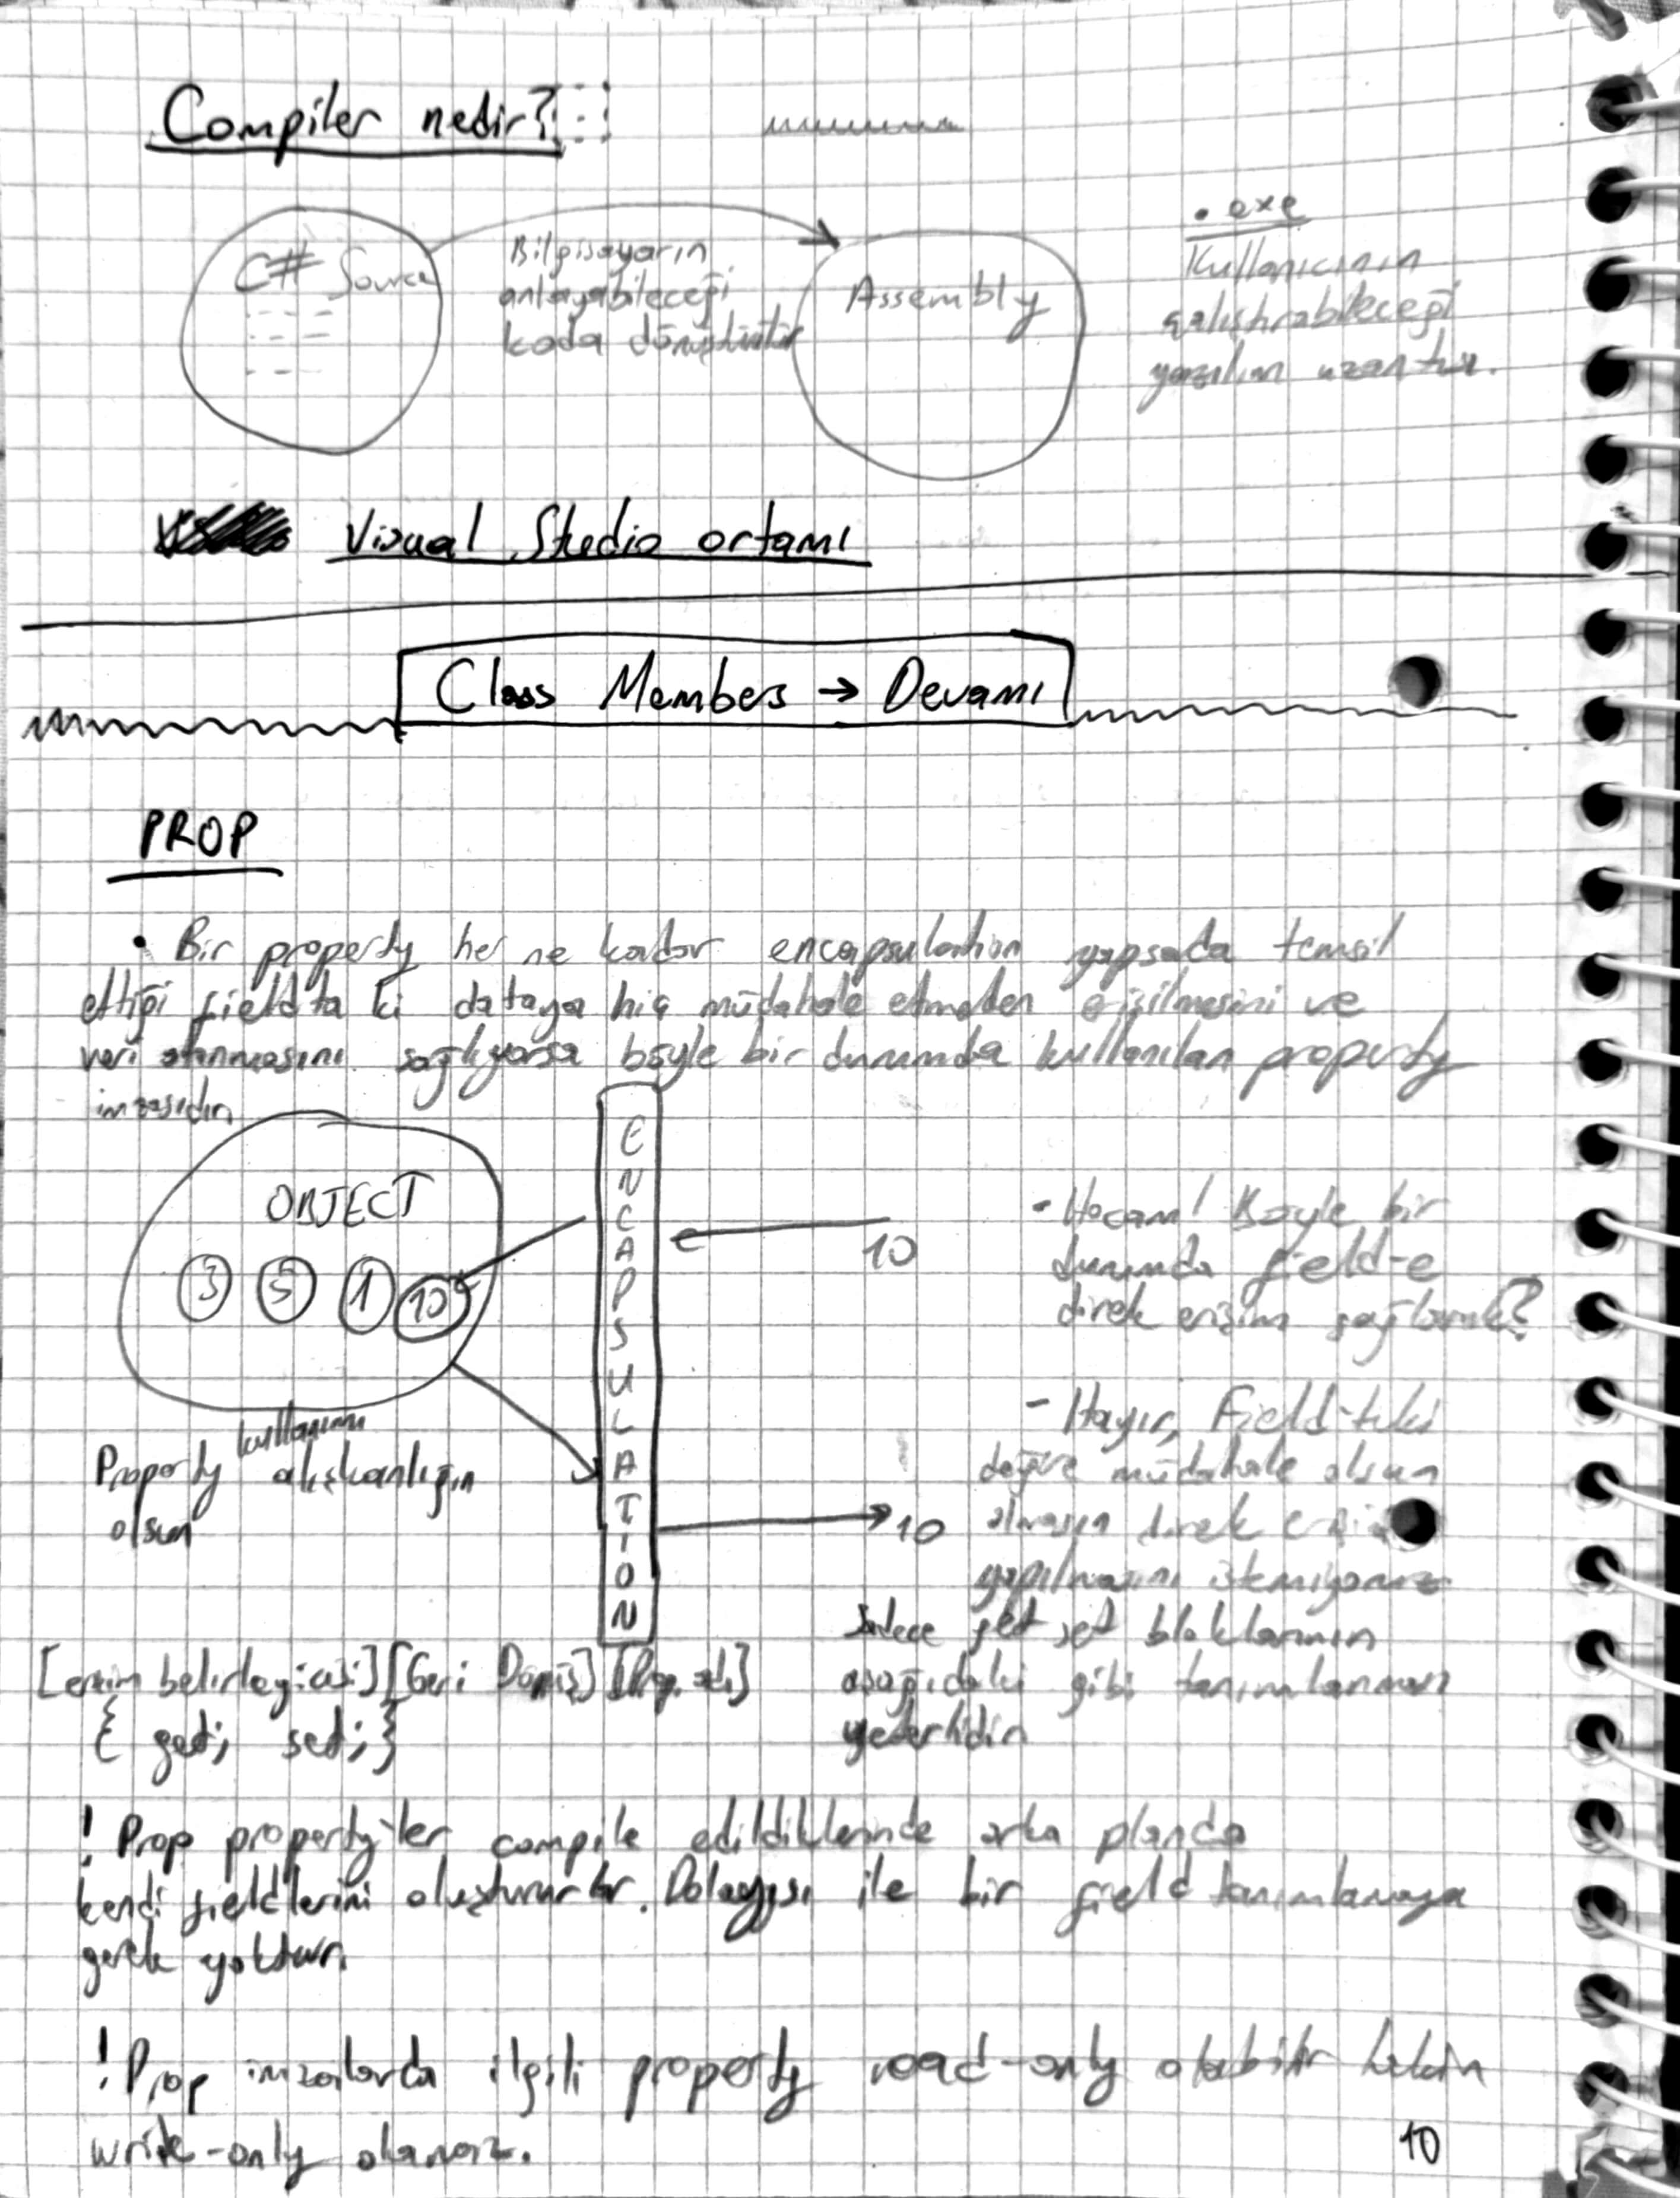 Compiler nedir?
C# Source
Bilgisayarın
anlayabileceği
koda dönüştürür
Assembly
.exe
Kullanıcının
çalıştırabileceği
yazılım uzantısı.
Visual Studio ortamı
Class Members → Devamı
PROP
• Bir property her ne kadar encapsulation yapsada temsil
ettiği fieldta ki dataya hiç müdahale etmeden erişilmesini ve
veri atanmasını sağlıyorsa böyle bir durumda kullanılan property
imzasıdır.
OBJECT
3 5 1 10
ENCAPSULATION
10
10
- Hocam! Böyle bir
durumda field-e
direk erişim sağlamak?
- Hayır, Field-teki
değere müdahale olsun
olmasın direk
yapılmasını istemiyoruz
Sadece get set bloklarının
aşağıdaki gibi tanımlanması
yeterlidir
Property kullanımı alışkanlığın
olsun
[erişim belirleyicisi][Geri Dönüş][Prop. adı]
{ get; set; }
! Prop property-ler compile edildiklerinde arka planda
kendi fieldlerini oluştururlar. Dolayısı ile bir field tanımlamaya
gerek yoktur.
! Prop imzalarda ilgili property read-only olabilir lakin
write-only olamaz.
10